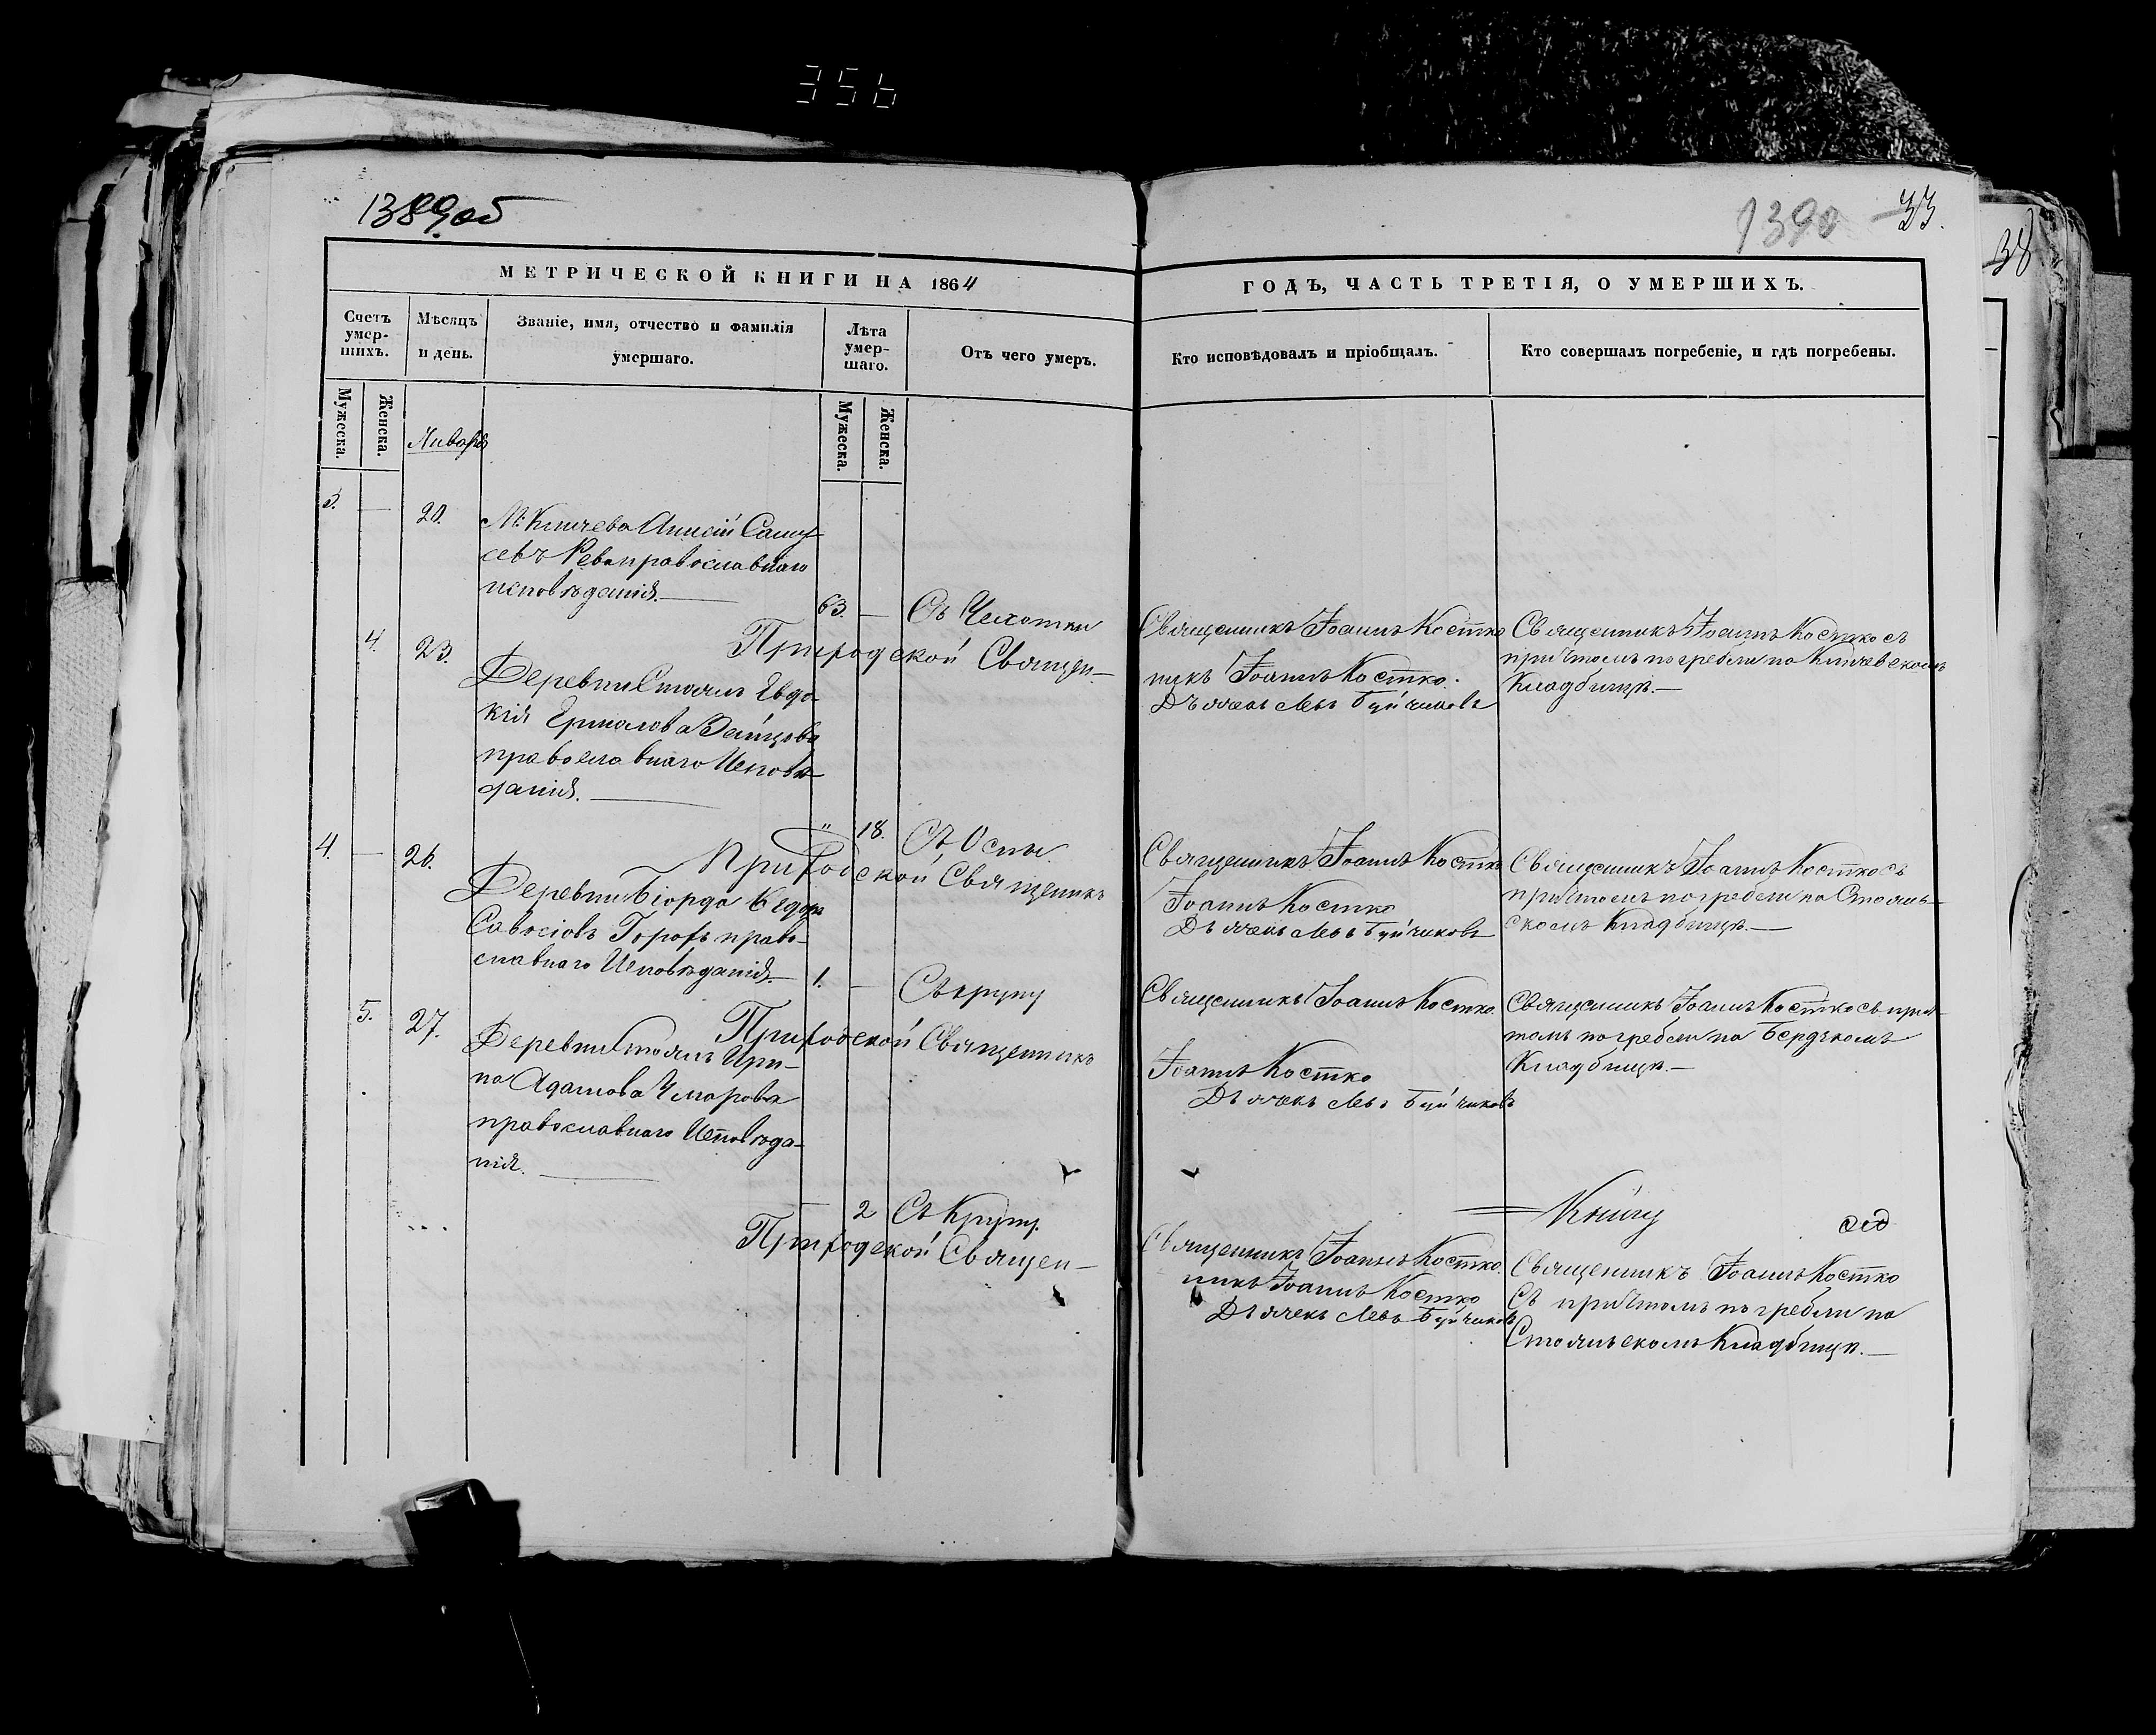 356
1389об
1390 33.
38
МЕТРИЧЕСКОЙ КНИГИ НА 1864
ГОДЪ, ЧАСТЬ ТРЕТІЯ, О УМЕРШИХЪ.
Счетъ умер-
шихъ.
Мѣсяцъ
и день.
Званіе, имя, отчество и фамилія
умершаго.
Лѣта
умер-
шаго.
Отъ чего умеръ.
Кто исповѣдовалъ и пріобщалъ.
Кто совершалъ погребеніе, и гдѣ погребены.
Мужеска.
Женска.
Январь
Мужеска.
Женска.
3. — 20.
М. Кличева
православнаго
исповѣданія.—
63. — Отъ Чахотки
Священникъ Іоаннъ Костко
Священникъ Іоаннъ Костко съ
причтомъ погребли на Кличевскомъ
Кладбищѣ.—
Приходской Священ-
никъ Іоаннъ Костко.
Дьячекъ Левъ Буйчиковъ
4. 23.
Деревни Стоялъ Евдо-
кія Ермолова Зайцова
православнаго Исповѣ-
данія.—
" 18. Отъ Оспы.
Священникъ Іоаннъ Костко
Священникъ Іоаннъ Костко съ
причтомъ погребли на Стоялъ-
скомъ Кладбищѣ.—
Приходской Священикъ
Іоаннъ Костко
Дьячекъ Левъ Буйчиковъ
4. — 26.
Деревни
православнаго Исповѣданія.—
1. — Отъ крупу
Священникъ Іоаннъ Костко.
Священникъ Іоаннъ Костко съ прич-
томъ погребли на
Кладбищѣ.—
Приходской Священникъ
Іоаннъ Костко
Дьячекъ Левъ Буйчиковъ
5. 27.
Деревни Стоялъ Ири-
на Адамова
православнаго Исповѣда-
нія.—
— 2 Отъ Крупу.
Священникъ Іоаннъ Костко.
Священникъ Іоаннъ Костко
Съ причтомъ погребли на
Стоялъскомъ Кладбищѣ.—
Приходской Священ-
никъ Іоаннъ Костко
Дьячекъ Левъ Буйчиковъ